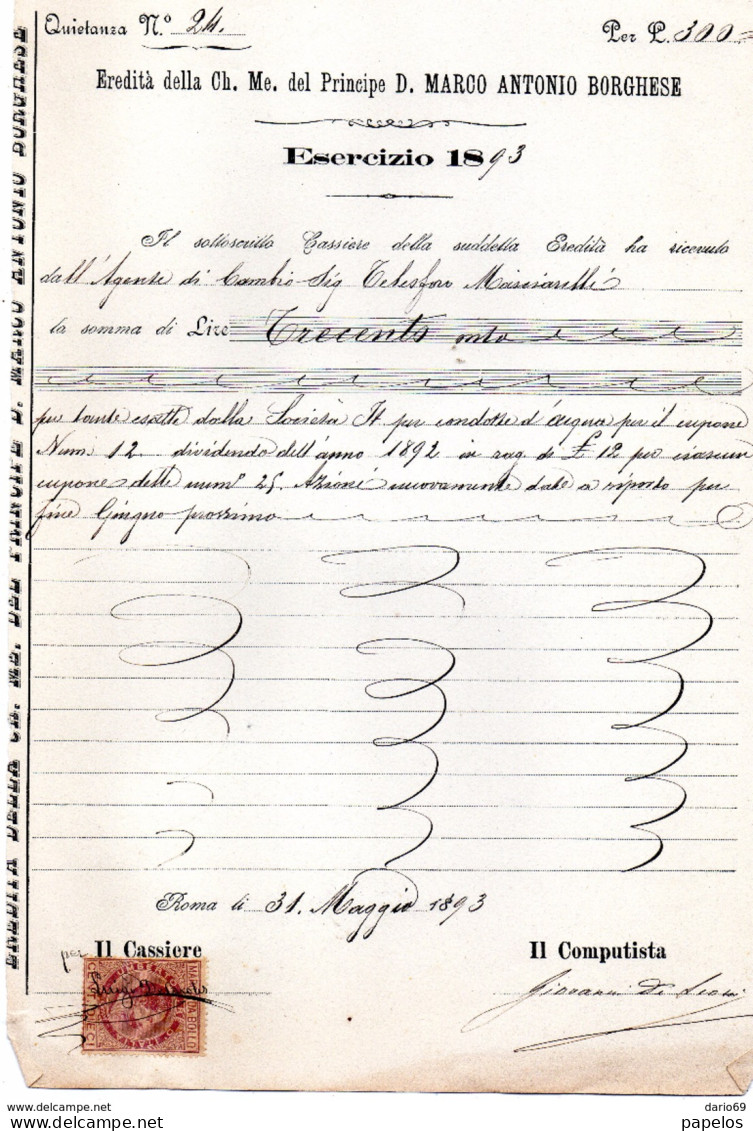 Quietanza N.º 24. Per L. 300=
Eredità della Ch. Me. del Principe D. MARCO ANTONIO BORGHESE
Esercizio 1893
Il sottoscritto Cassiere della suddetta Eredità ha ricevuto
dall'Agente di Cambio Sig Telesforo Masciarelli
la somma di Lire Trecento
per tante esatte dalla Società It per condotte d'acqua per il cupone
Num. 12. dividendo dell'anno 1892 in rag. di £ 12 per ciascun
cupone delle num° 25. Azioni nuovamente date a riporto per
fine Giugno prossimo
Roma li 31. Maggio 1893
per Il Cassiere Il Computista
MARCA DA BOLLO
CENT. DIECI
Giovanni De
EREDITÀ DELLA CH. ME. DEL PRINCIPE D. MARCO ANTONIO BORGHESE
www.delcampe.net dario69
www.delcampe.net papelos